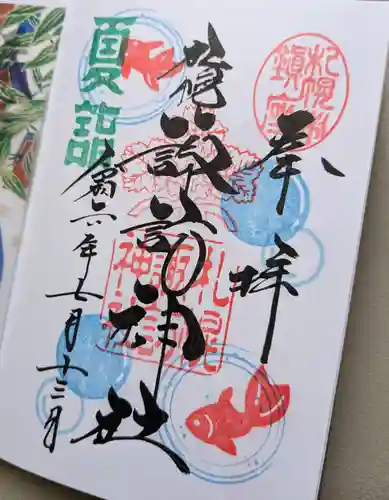 札幌村
鎮座
奉拝
札幌諏訪神社
札幌
諏訪
神社
夏詣
令和六年七月十三日